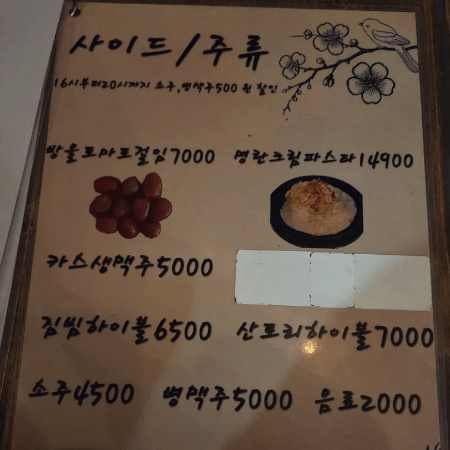 사이드/주류
16시부터20시까지 소주,병맥주500 원 할인
방울토마토절임7000 명란크림파스타14900
카스생맥주5000
짐빔하이볼6500 산토리하이볼7000
소주4500 병맥주5000 음료2000